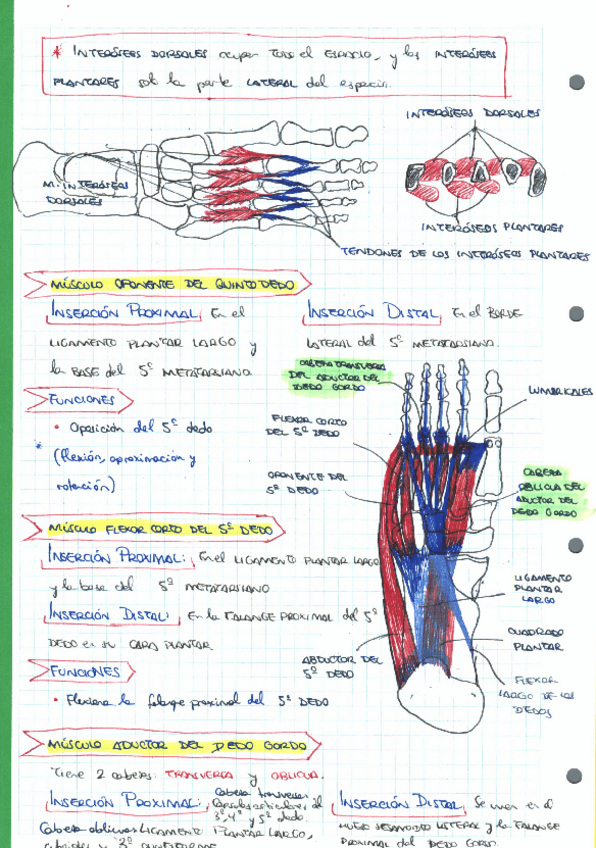 * INTERÓSEOS DORSALES ocupan todo el ESPACIO, y los INTERÓSEOS
PLANTARES solo la parte LATERAL del espacio.
INTERÓSEOS DORSALES
M. INTERÓSEOS
DORSALES
INTERÓSEOS PLANTARES
TENDONES DE LOS INTERÓSEOS PLANTARES
MÚSCULO OPONENTE DEL QUINTO DEDO
INSERCIÓN PROXIMAL: En el
LIGAMENTO PLANTAR LARGO y
la BASE del 5º METATARSIANO
INSERCIÓN DISTAL: En el BORDE
LATERAL del 5º METATARSIANO.
FUNCIONES
• Oposición del 5º dedo
* (flexión, aproximación y
rotación)
CABEZA TRANSVERSA
DEL ADUCTOR DEL
DEDO GORDO
LUMBRICALES
FLEXOR CORTO
DEL 5º DEDO
OPONENTE DEL
5º DEDO
CABEZA
OBLICUA DEL
ADUCTOR DEL
DEDO GORDO
LIGAMENTO
PLANTAR
LARGO
CUADRADO
PLANTAR
FLEXOR
LARGO DE LOS
DEDOS
ABDUCTOR DEL
5º DEDO
MÚSCULO FLEXOR CORTO DEL 5º DEDO
INSERCIÓN PROXIMAL: En el LIGAMENTO PLANTAR LARGO
y la base del 5º METATARSIANO
INSERCIÓN DISTAL: En la FALANGE PROXIMAL del 5º
DEDO en su CARA PLANTAR.
FUNCIONES
• Flexiona la falange proximal del 5º DEDO
MÚSCULO ADUCTOR DEL DEDO GORDO
Tiene 2 cabezas: TRANSVERSA y OBLICUA.
INSERCIÓN PROXIMAL: Cabeza transversa:
Cápsulas articulares del
3º, 4º y 5º dedo.
Cabeza oblicua: LIGAMENTO PLANTAR LARGO,
INSERCIÓN DISTAL: Se unen en el
HUESO SESAMOIDEO LATERAL y la FALANGE
PROXIMAL del DEDO GORDO